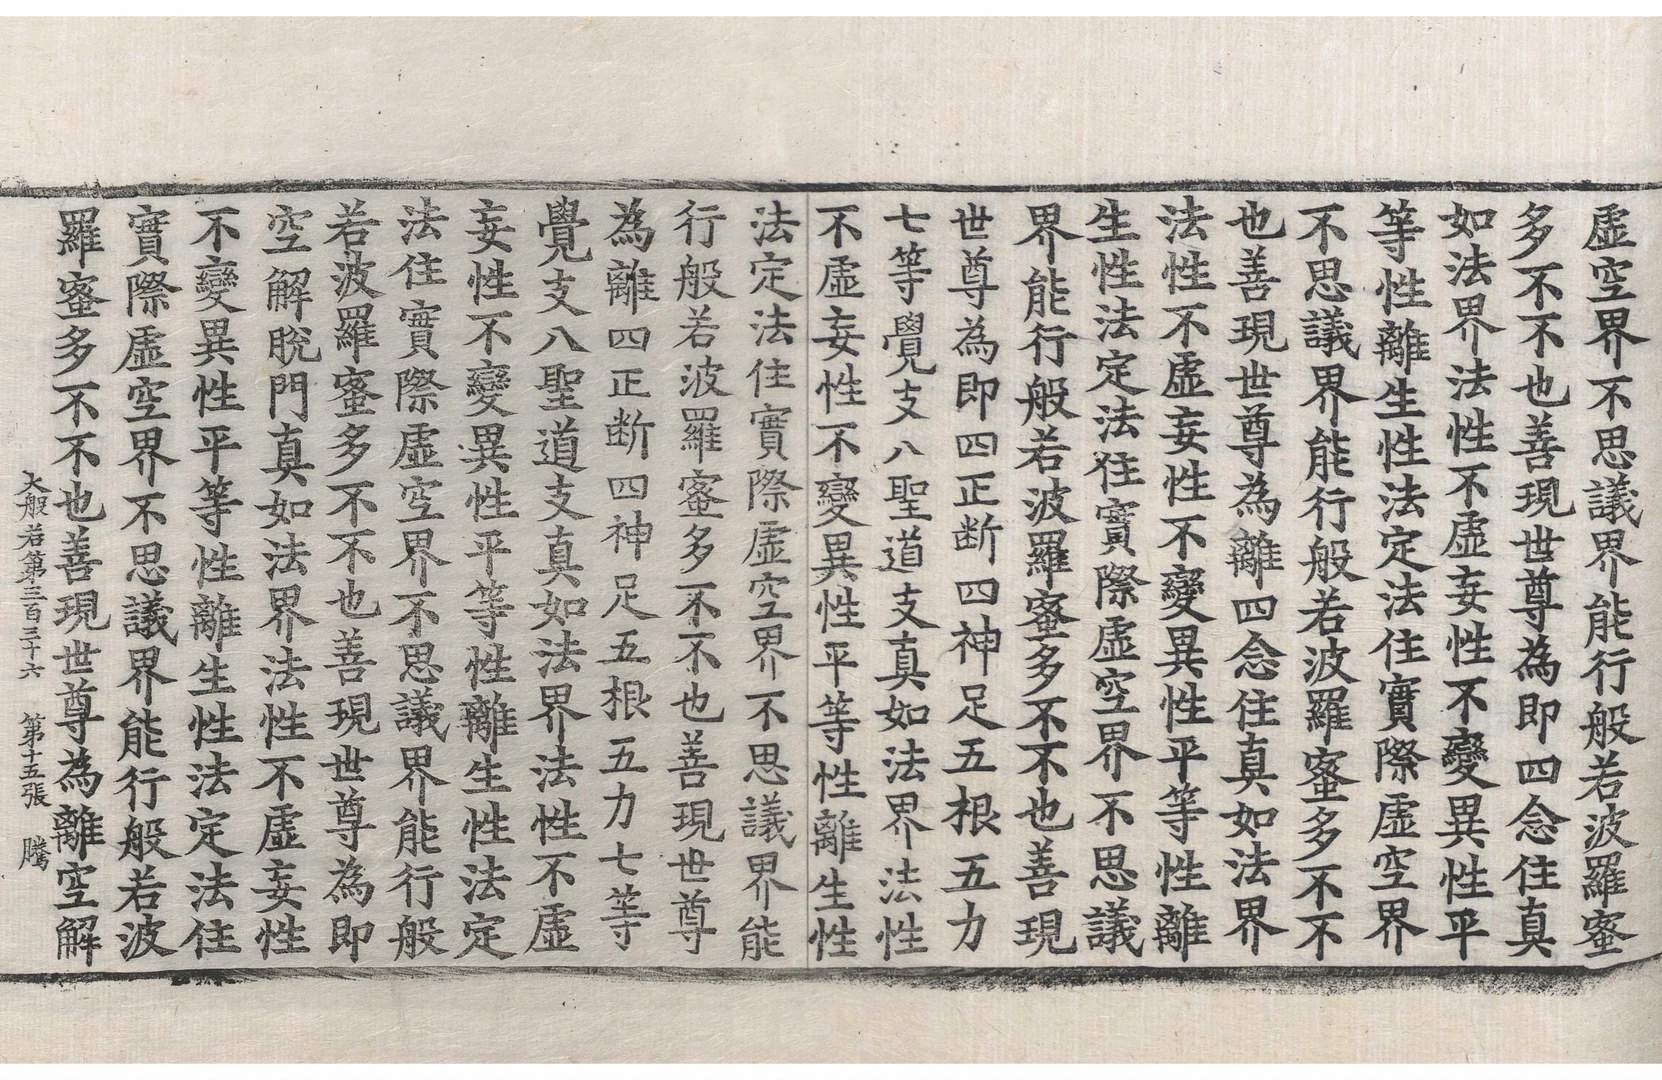 虛空界不思議界能行般若波羅蜜
多不不也善現世尊為即四念住真
如法界法性不虛妄性不變異性平
等性離生性法定法住實際虛空界
不思議界能行般若波羅蜜多不不
也善現世尊為離四念住真如法界
法性不虛妄性不變異性平等性離
生性法定法住實際虛空界不思議
界能行般若波羅蜜多不不也善現
世尊為即四正断四神足五根五力
七等覺支八聖道支真如法界法性
不虛妄性不變異性平等性離生性
法定法住實際虛空界不思議界能
行般若波羅蜜多不不也善現世尊
為離四正断四神足五根五力七等
覺支八聖道支真如法界法性不虛
妄性不變異性平等性離生性法定
法住實際虛空界不思議界能行般
若波羅蜜多不不也善現世尊為即
空解脫門真如法界法性不虛妄性
不變異性平等性離生性法定法住
實際虛空界不思議界能行般若波
羅蜜多不不也善現世尊為離空解
大般若第三百三十六　第十五張　騰